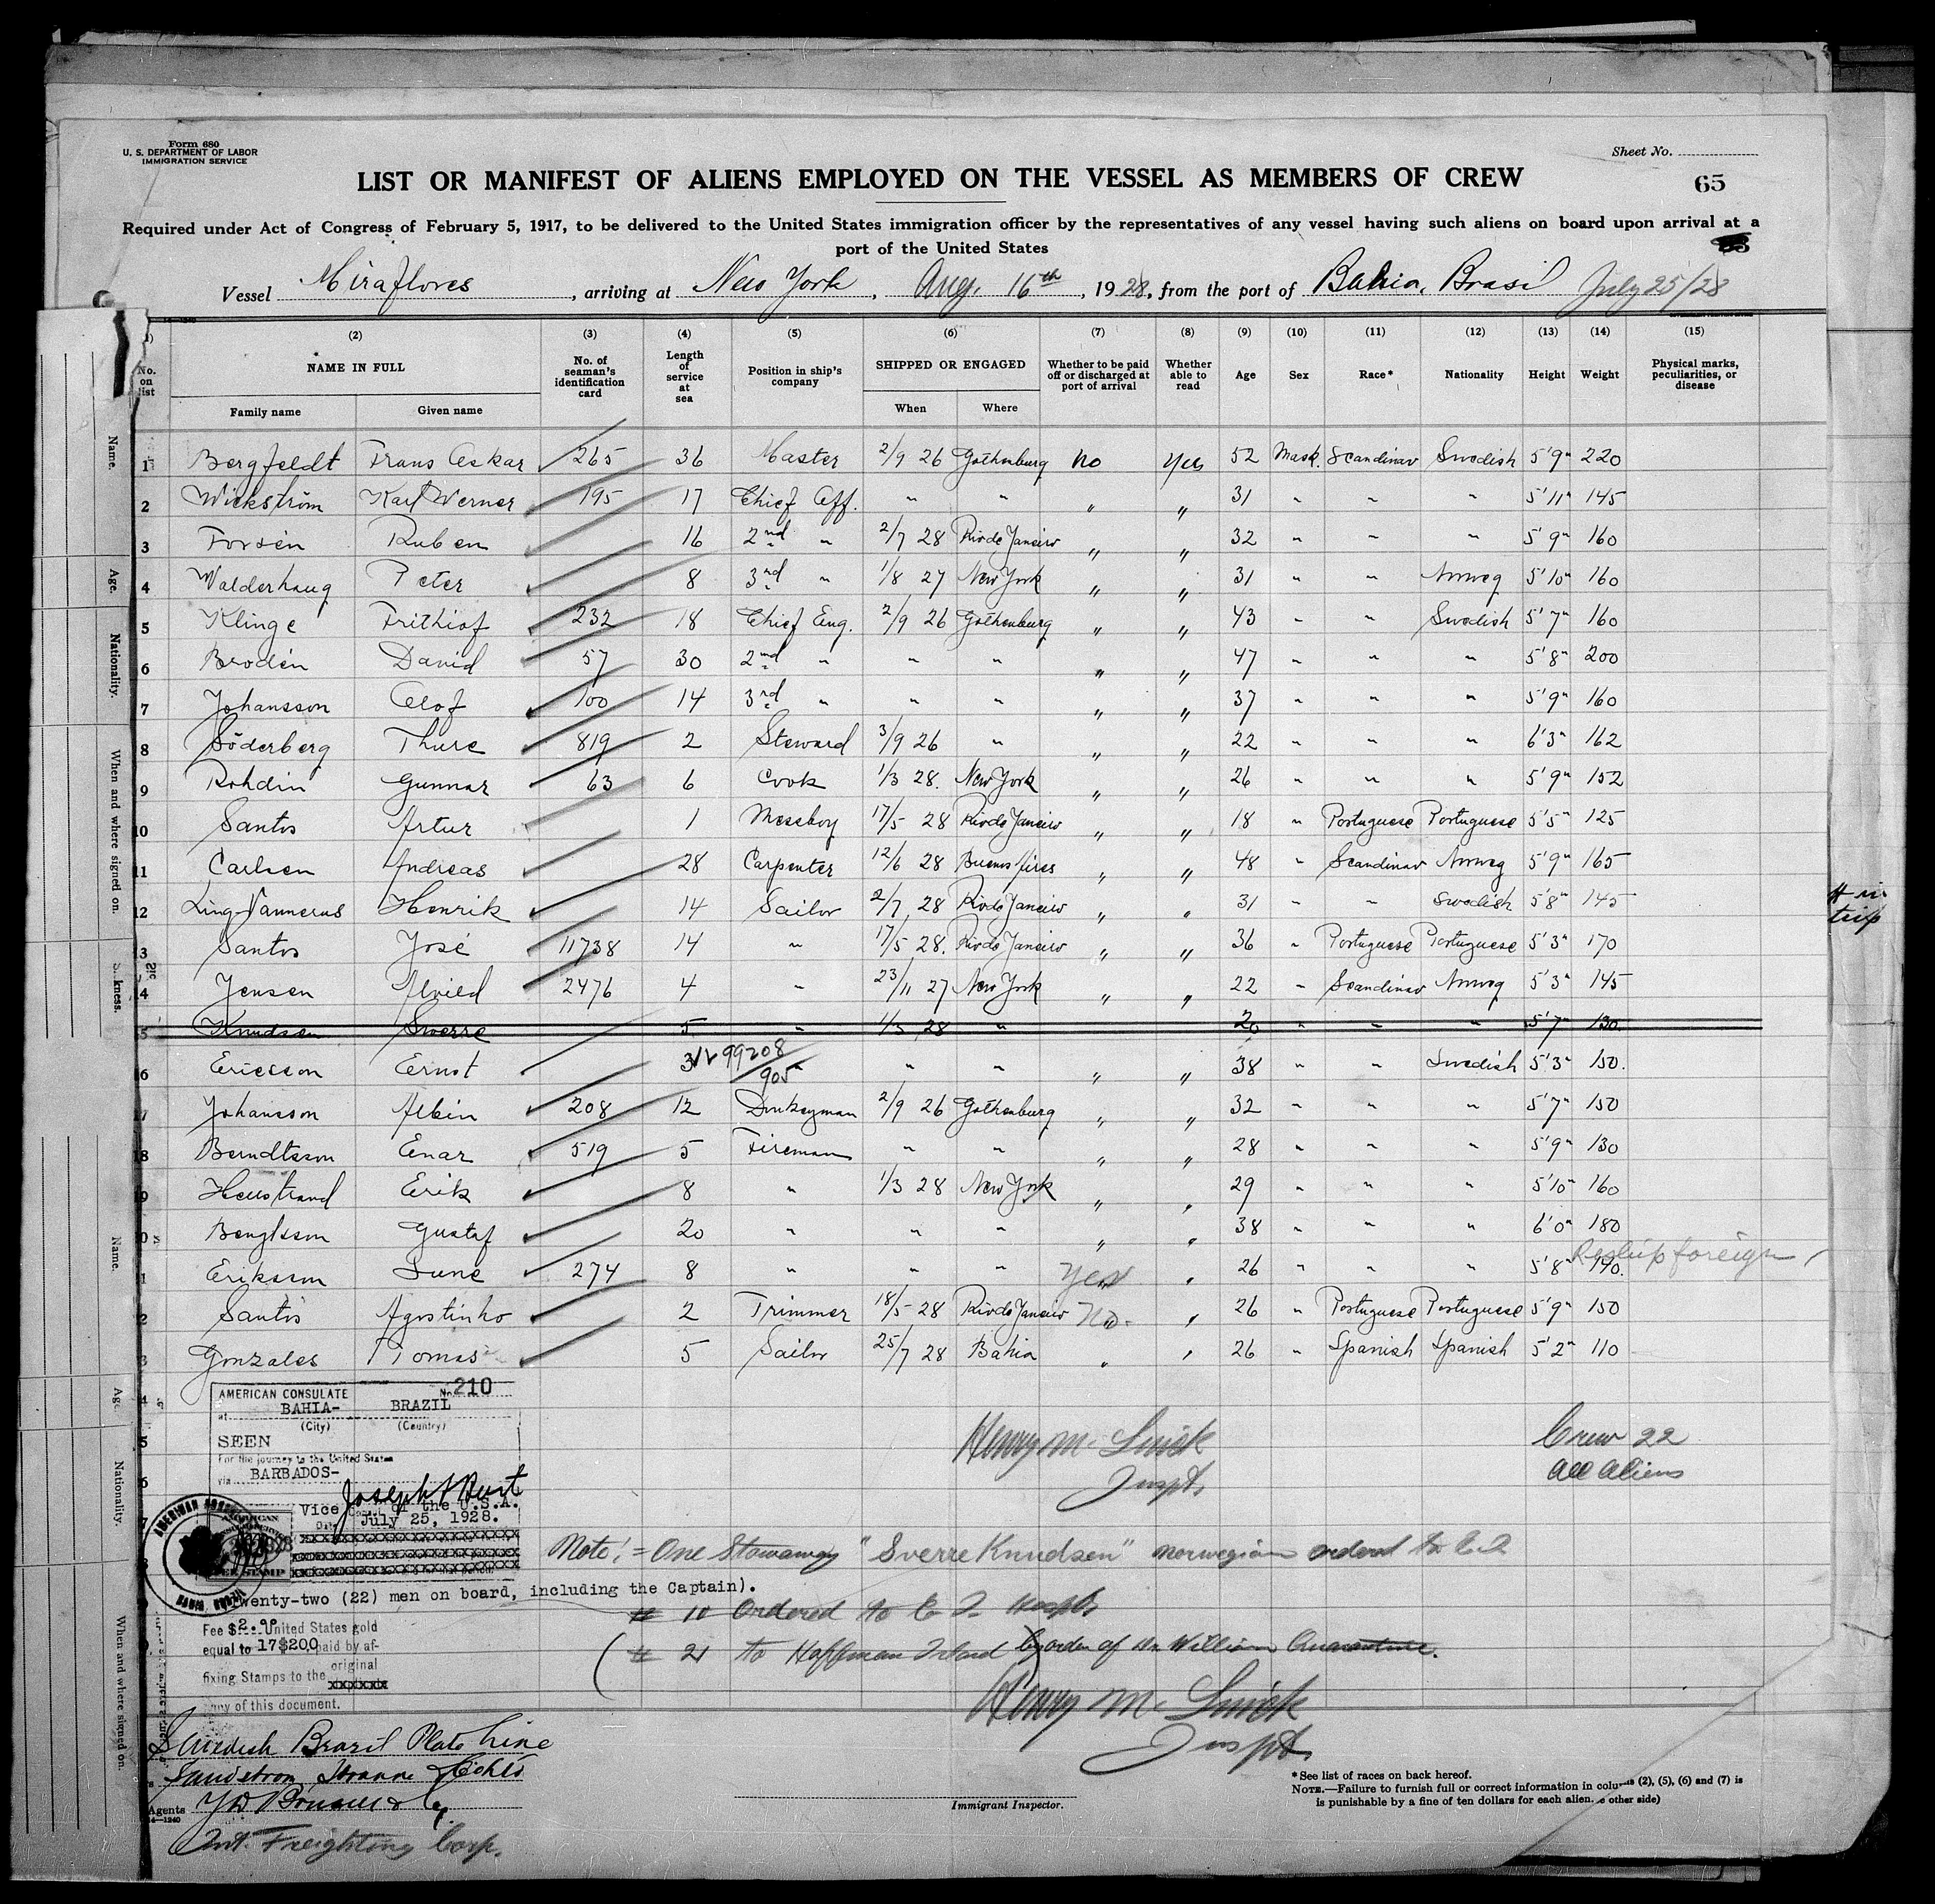 Form 680
U. S. DEPARTMENT OF LABOR
IMMIGRATION SERVICE
Sheet No.
LIST OR MANIFEST OF ALIENS EMPLOYED ON THE VESSEL AS MEMBERS OF CREW
65
Required under Act of Congress of February 5, 1917, to be delivered to the United States immigration officer by the representatives of any vessel having such aliens on board upon arrival at a
port of the United States
Vessel Miraflores, arriving at New York, Aug. 16th, 1928, from the port of Bahia, Brasil July 25/28
(2) (3) (4) (5) (6) (7) (8) (9) (10) (11) (12) (13) (14) (15)
No. on list NAME IN FULL No. of seaman's identification card Length of service at sea Position in ship's company SHIPPED OR ENGAGED Whether to be paid off or discharged at port of arrival Whether able to read Age Sex Race* Nationality Height Weight Physical marks, peculiarities, or disease
Family name Given name When Where
1 Bergfeldt Frans Oskar 265 36 Master 2/9 26 Gothenburg no Yes 52 Mask. Scandinav Swedish 5'9" 220
2 Wickström Karl Werner 195 17 Chief Off. " " " " 31 " " " 5'11" 145
3 Forsén Ruben 16 2nd " 2/7 28 Rio de Janeiro " " 32 " " " 5'9" 160
4 Walderhaug Peter 8 3rd " 1/8 27 New York " " 31 " " Norweg 5'10" 160
5 Klinge Frithiof 232 18 Chief Eng. 2/9 26 Gothenburg " " 43 " " Swedish 5'7" 160
6 Brodén David 57 30 2nd " " " " " 47 " " " 5'8" 200
7 Johansson Olof 100 14 3rd " " " " " 37 " " " 5'9" 160
8 Söderberg Thure 819 2 Steward 3/9 26 " " " 22 " " " 6'3" 162
9 Rohdin Gunnar 63 6 Cook 1/3 28. New York " " 26 " " " 5'9" 152
10 Santos Artur 1 Messboy 17/5 28 Rio de Janeiro " " 18 " Portuguese Portuguese 5'5" 125
11 Carlsen Andreas 28 Carpenter 12/6 28 Buenos Aires " " 48 " Scandinav Norweg 5'9" 165
12 Ling-Vannerus Henrik 14 Sailor 2/7 28 Rio de Janeiro " " 31 " " Swedish 5'8" 145
13 Santos José 11738 14 " 17/5 28. Rio de Janeiro " " 36 " Portuguese Portuguese 5'3" 170
14 Jensen Alvild 2476 4 " 23/11 27 New York " " 22 " Scandinav Norweg 5'3" 145
15 Knudsen Sverre 5 " 1/3 28 " 20 " " " 5'7" 130
16 Ericsson Ernst 3 99208/905 " " " " " 38 " " Swedish 5'3" 150.
17 Johansson Albin 208 12 Donkeyman 2/9 26 Gothenburg " " 32 " " " 5'7" 150
18 Berndtsson Einar 519 5 Fireman " " " " 28 " " " 5'9" 130
19 Hellstrand Erik 8 " 1/3 28 New York " " 29 " " " 5'10" 160
20 Bengtsson Gustaf 20 " " " " " 38 " " " 6'0" 180
21 Eriksson Sune 274 8 " " " Yes " 26 " " " 5'8" 190. Reship foreign
22 Santos Agostinho 2 Trimmer 18/5 28 Rio de Janeiro No. " 26 " Portuguese Portuguese 5'9" 150
23 Gonzales Tomas 5 Sailor 25/7 28 Bahia " " 26 " Spanish Spanish 5'2" 110
AMERICAN CONSULATE No. 210
at BAHIA- BRAZIL
(City) (Country)
SEEN
For the journey to the United States
via BARBADOS-
Vice Consul of the U.S.A.
Date July 25, 1928.
Henry M. Smick
Inspt.
Crew 22
All Aliens
Note! = One Stowaway "Sverre Knudsen" norwegian ordered to E.I.
Twenty-two (22) men on board, including the Captain).
# 10 Ordered to E. I. Hospt.
(# 21 to Hoffman Island) by order of Dr. William Quarantine.
Fee $2.00 United States gold
equal to 17$200 paid by af-
fixing Stamps to the original
copy of this document.
Henry M. Smick
Inspt.
Swedish Brazil Plate Line
Agents
14—1240
Int. Freighting Corp.
Immigrant Inspector.
* See list of races on back hereof.
NOTE.—Failure to furnish full or correct information in columns (2), (5), (6) and (7) is
is punishable by a fine of ten dollars for each alien. (See other side)
Name.
Age.
Nationality.
When and where signed on.
Sickness.
Name.
Age.
Nationality.
When and where signed on.